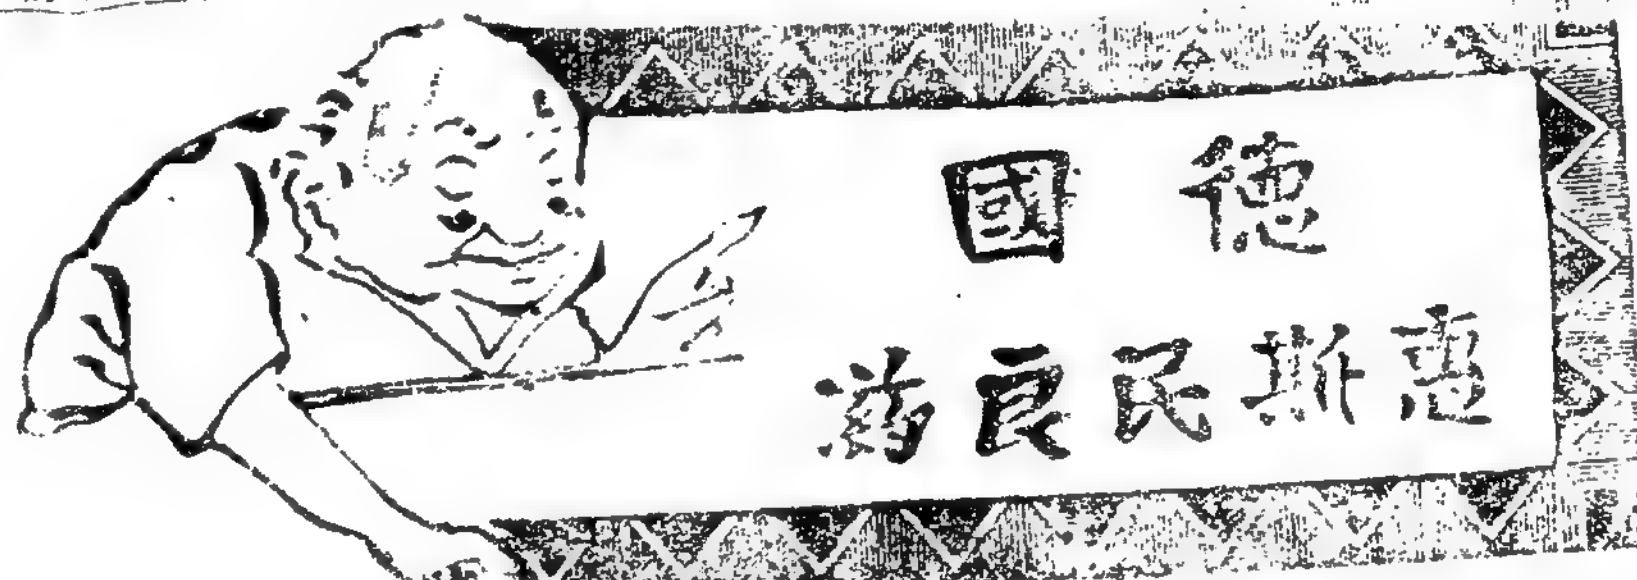 德國
惠斯民良葯